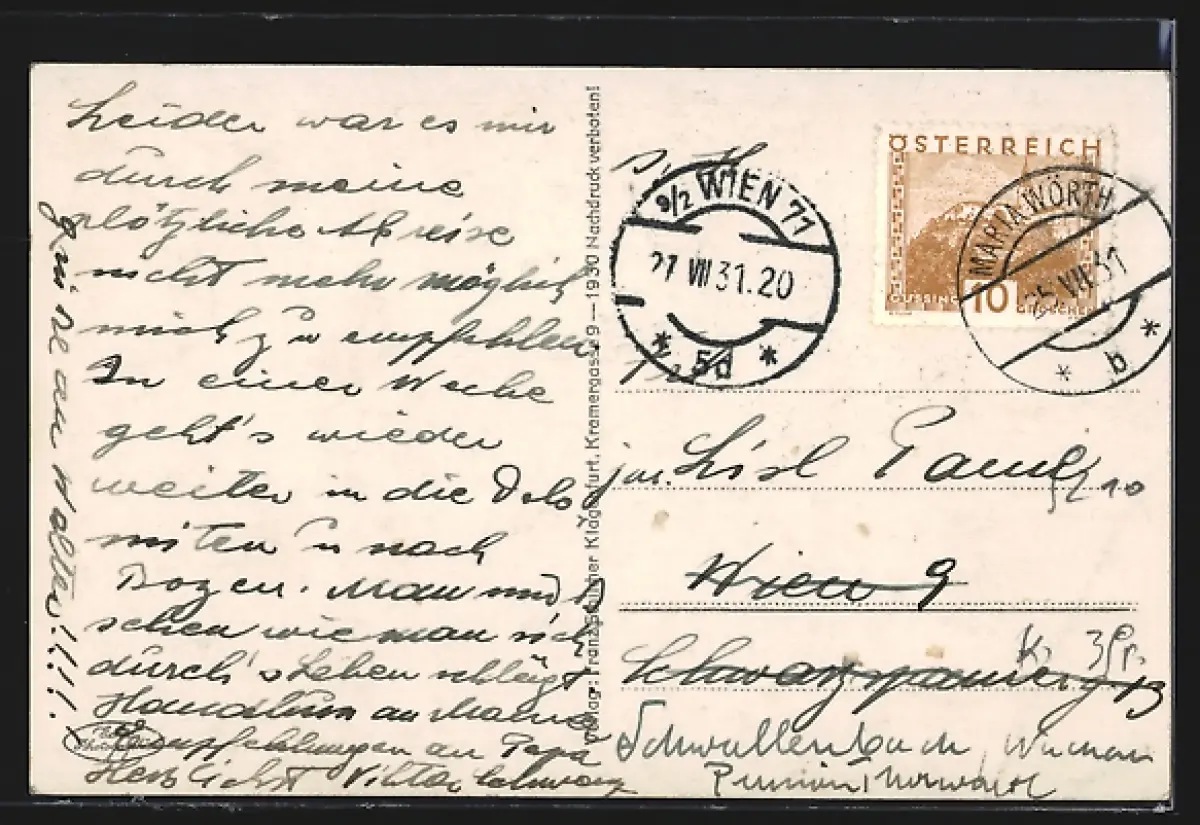 Leider war es mir
durch meine
plötzliche Abreise
nicht mehr möglich
mich zu empfehlen.
In einer Woche
geht's wieder
weiter in die Dolo
miten u nach
Bozen. Man muß
sehen wie man sich
durch's Leben schlägt
Handkuss an Mama
Empfehlungen an Papa
Herzlichst Viktor Schwarz
Grüße an Walter!!!!
Verlag: Franz Schilcher Klagenfurt, Kramergasse 9 — 1930 Nachdruck verboten!
9/2 WIEN 71
27 VII 31.20
* 5d *
ÖSTERREICH
GÜSSING 10 GROSCHEN
MARIA WÖRTH
25.VII.31
* b *
Lisl
Wien 9
Schwarzspanierg 13
Schwallenbach, Wachau
Pension